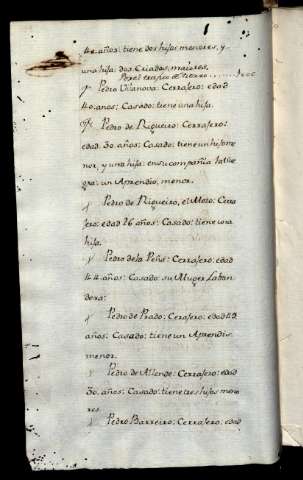 42 años: tiene dos hijos menores, y
una hija: dos Criados, maiores.
Por el trafico de fierro
Pedro Vilanova: Cerrajero: edad
40. años: Casado: tiene una hija.
Pedro de Rigueiro: Cerrajero:
edad. 30. años: Casado: tiene un hijo me
nor, y una hija: en su compañia la sue
gra: un Aprendiz, menor.
Pedro de Rigueiro, el Mozo: Cerra
jero: edad 26 años: Casado: tiene una
hija.
Pedro de la Peña: Cerrajero: edad
44. años: Casado: su Muger Laban
dera:
Pedro de Prado: Cerajero: edad 49
años: Casado: tiene un Aprendis
menor.
Pedro de Allende: Cerrajero: edad
30. años: Casado: tiene tres hijos meno
res
Pedro Barreiro: Cerrajero: edad